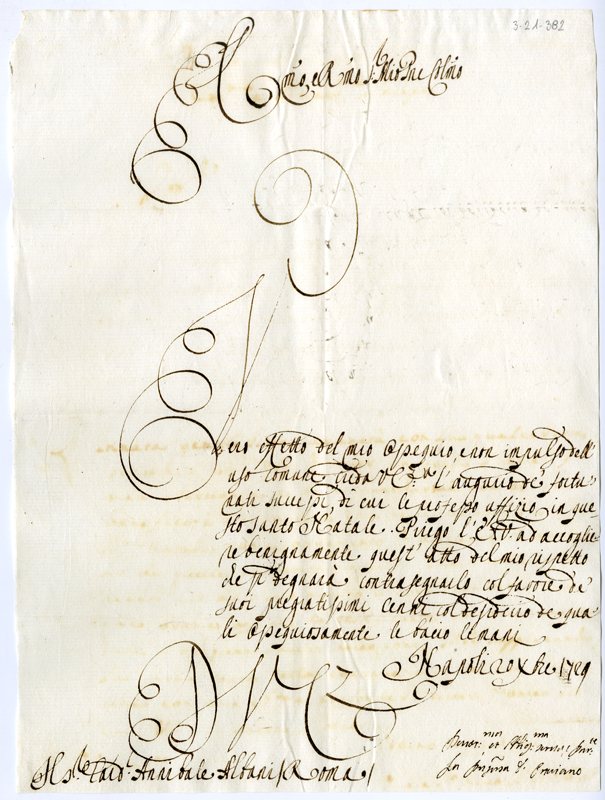 3-21-382
Emo, e Rmo Sig.r Mio Pne Colmo
Vero effetto del mio ossequio, e non impulso dell'
uso comune creda V.E. l'augurio de' fortu-
nati successi, di cui le professo uffizio in que
sto Santo Natale. Priego l'E.V. ad accoglie
re benignamente quest' atto del mio rispetto
che si degnarà contrasegnarlo col favore de'
suoi pregiatissimi cenni col desiderio de qua-
li ossequiosamente le bacio le mani
Napoli 20 Xbre 1729
D V E
Sig.r Card.l Annibale Albani / Roma /